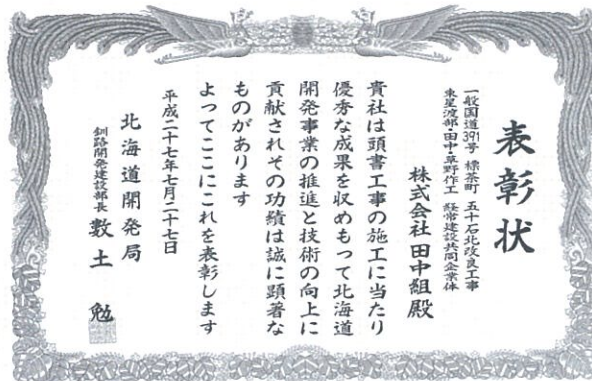 表彰状
一般国道391号 標茶町 五十石北改良工事
東星渡部・田中・草野作工 経常建設共同企業体
株式会社 田中組 殿
貴社は頭書工事の施工に当たり
優秀な成果を収めもって北海道
開発事業の推進と技術の向上に
貢献されその功績は誠に顕著な
ものがあります
よってここにこれを表彰します
平成二十七年七月二十七日
北海道開発局
釧路開発建設部長 数土 勉